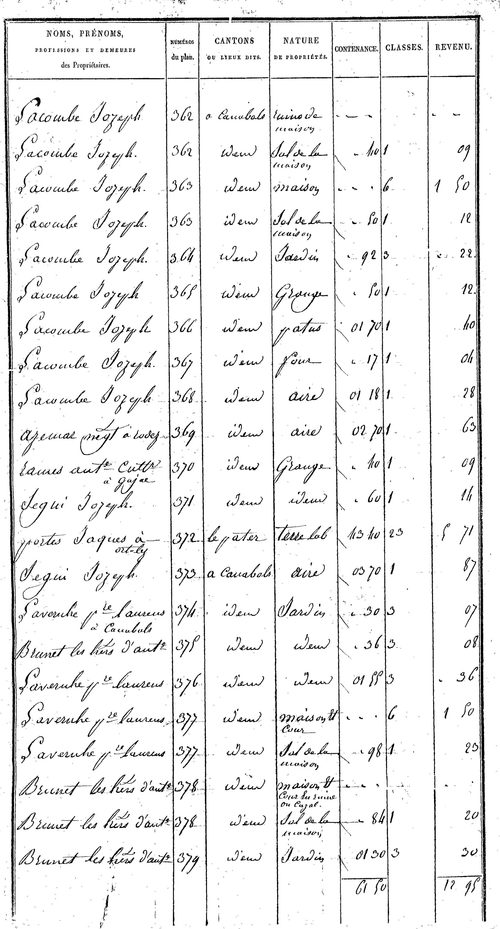 NOMS, PRÉNOMS, PROFESSIONS ET DEMEURES des Propriétaires. NUMÉROS du plan. CANTONS OU LIEUX DITS. NATURE DE PROPRIÉTÉS. CONTENANCE. CLASSES. REVENU.
Lacombe Jozeph 362 a Canabols ruine de maison
Lacombe Jozeph. 362 idem Sol de la maison 40 1 09
Lacombe Jozeph. 363 idem maison 6 1 50
Lacombe Jozeph 363 idem Sol de la maison 50 1 12
Lacombe Jozeph. 364 idem Jardin 92 3 22
Lacombe Jozeph 365 idem Grange 50 1 12
Lacombe Jozeph 366 idem patus 01 70 1 40
Lacombe Jozeph. 367 idem four 17 1 04
Lacombe Jozeph 368 idem aire 01 18 1 28
azemar négt a rodez 369 idem aire 02 70 1 63
ramés ante. Cultr. à gajac 370 idem Grange 40 1 09
Segui Jozeph. 371 idem idem 60 1 14
portes Jaques à 372 le pater terre lab 43 40 23 5 71
Segui Jozeph. 373 a Canabols aire 03 70 1 87
Lavernhe pre laurens à Canabols 374 idem Jardin 30 3 07
Brunet les hérs d'ante 375 idem idem 36 3 08
Lavernhe pre laurens 376 idem idem 01 55 3 36
Lavernhe pre laurens 377 idem maison et Cour 6 1 50
Lavernhe pre laurens 377 idem Sol de la maison 98 1 23
Brunet les hérs d'ante 378 idem maison et Cour en ruine ou Cazal
Brunet les hérs d'ante 378 idem Sol de la maison 84 1 20
Brunet les hérs d'ante 379 idem Jardin 01 30 3 30
61 50 12 95